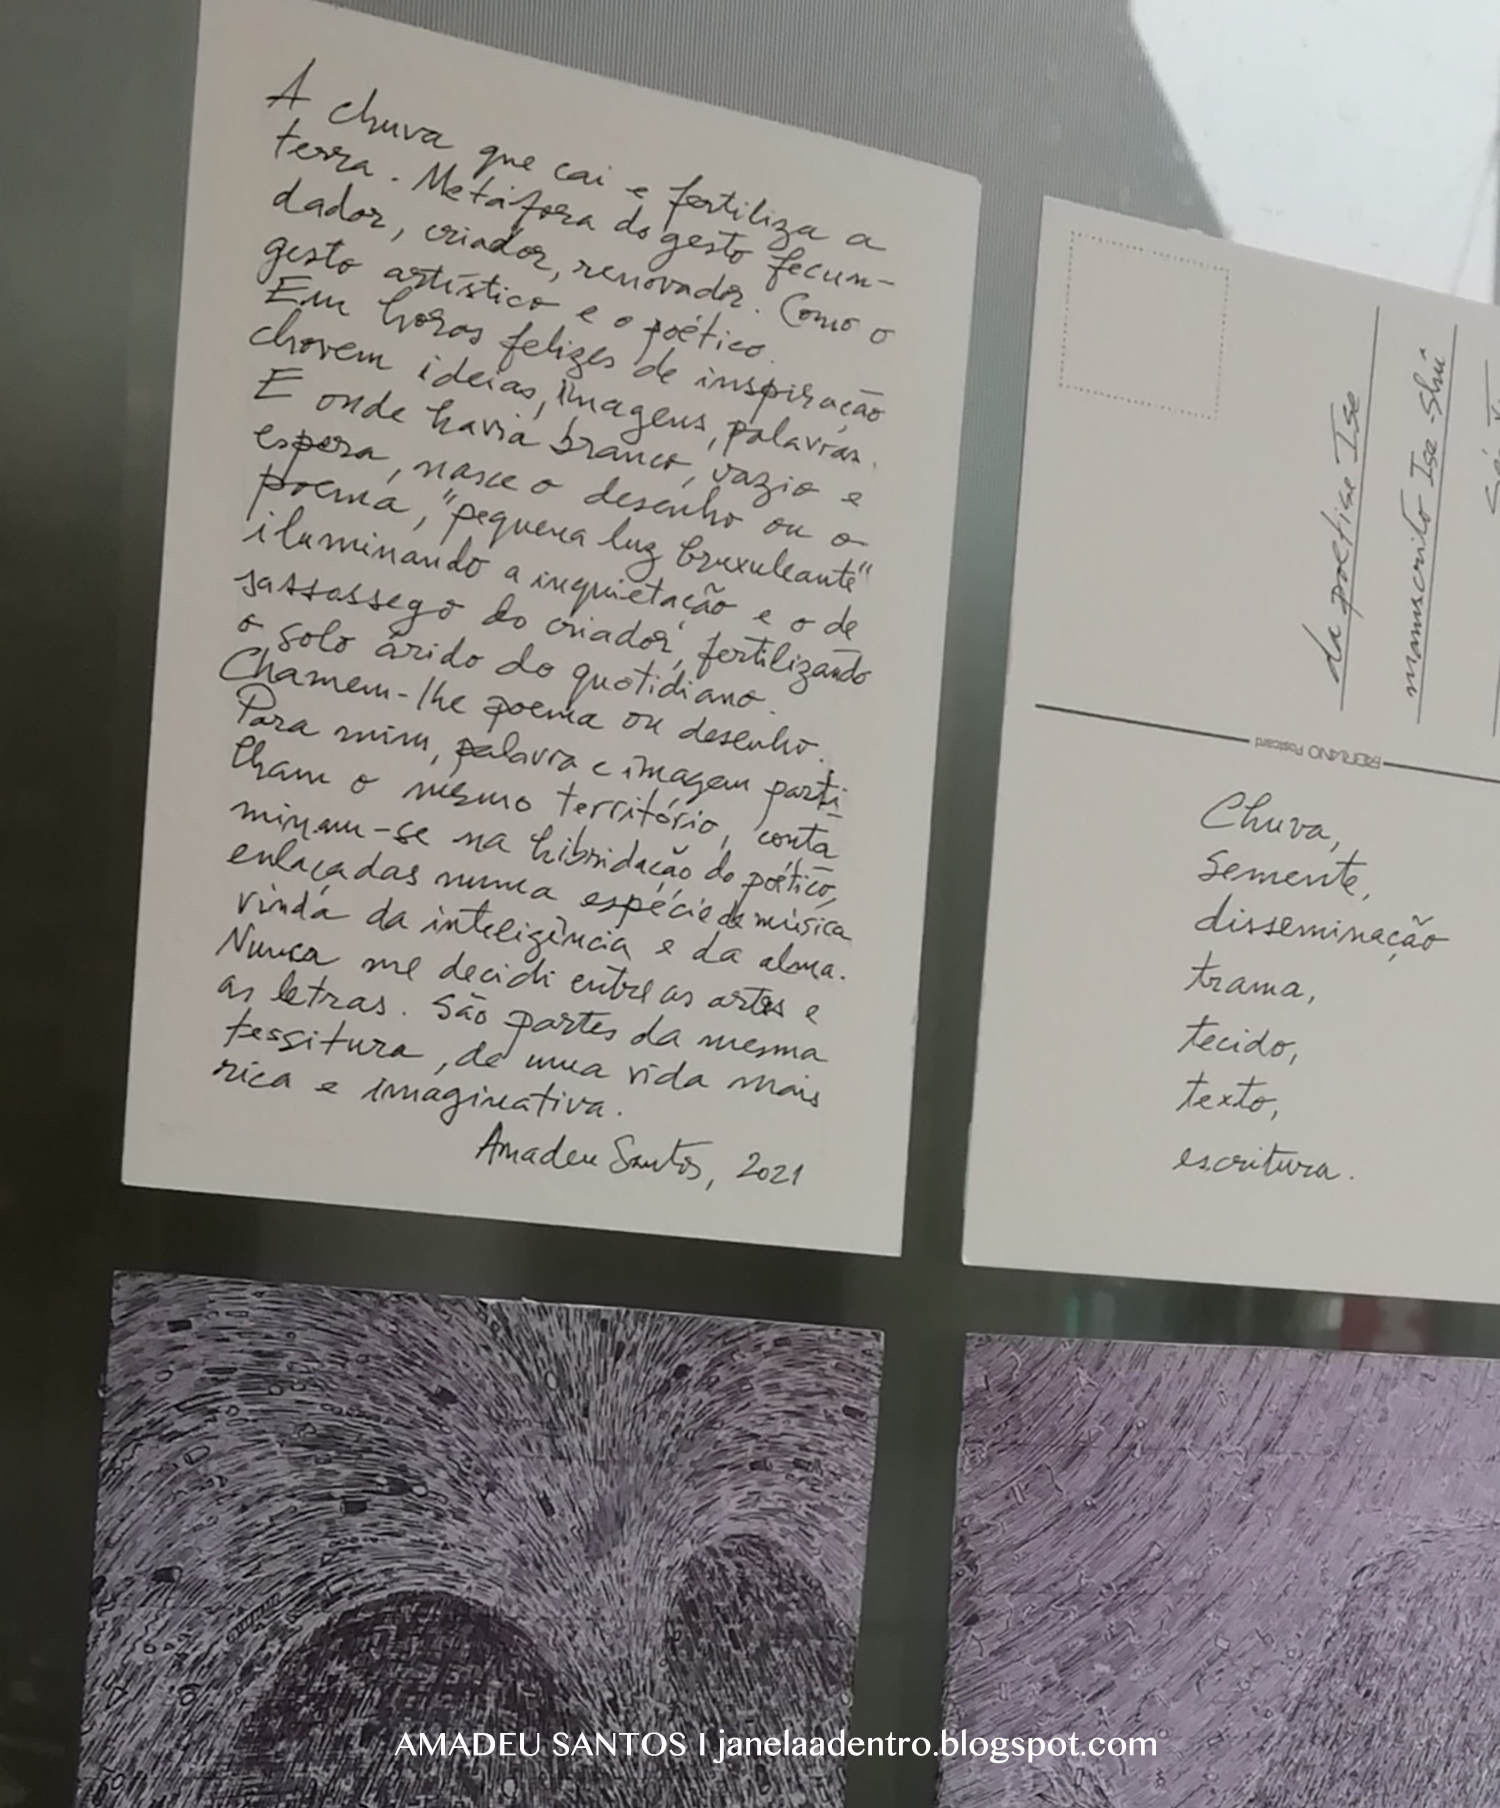 A chuva que cai e fertiliza a
terra. Metáfora do gesto fecun-
dador, criador, renovador. Como o
gesto artístico e o poético.
Em horas felizes de inspiração
chovem ideias, imagens, palavras.
E onde havia branco, vazio e
espera, nasce o desenho ou o
poema, "pequena luz bruxuleante"
iluminando a inquietação e o de
sassossego do criador, fertilizando
o solo árido do quotidiano.
Chamem-lhe poema ou desenho.
Para mim, palavra e imagem parti
lham o mesmo território, conta
minam-se na hibridação do poético,
enlaçadas numa espécie de música
vinda da inteligência e da alma.
Nunca me decidi entre as artes e
as letras. São partes da mesma
tessitura, de uma vida mais
rica e imaginativa.
Amadeu Santos, 2021
da poetisa Ise
manuscrito Ise-Shû
FABRIANO Postcard
Chuva,
semente,
disseminação
trama,
tecido,
texto,
escritura.
AMADEU SANTOS I janelaadentro.blogspot.com